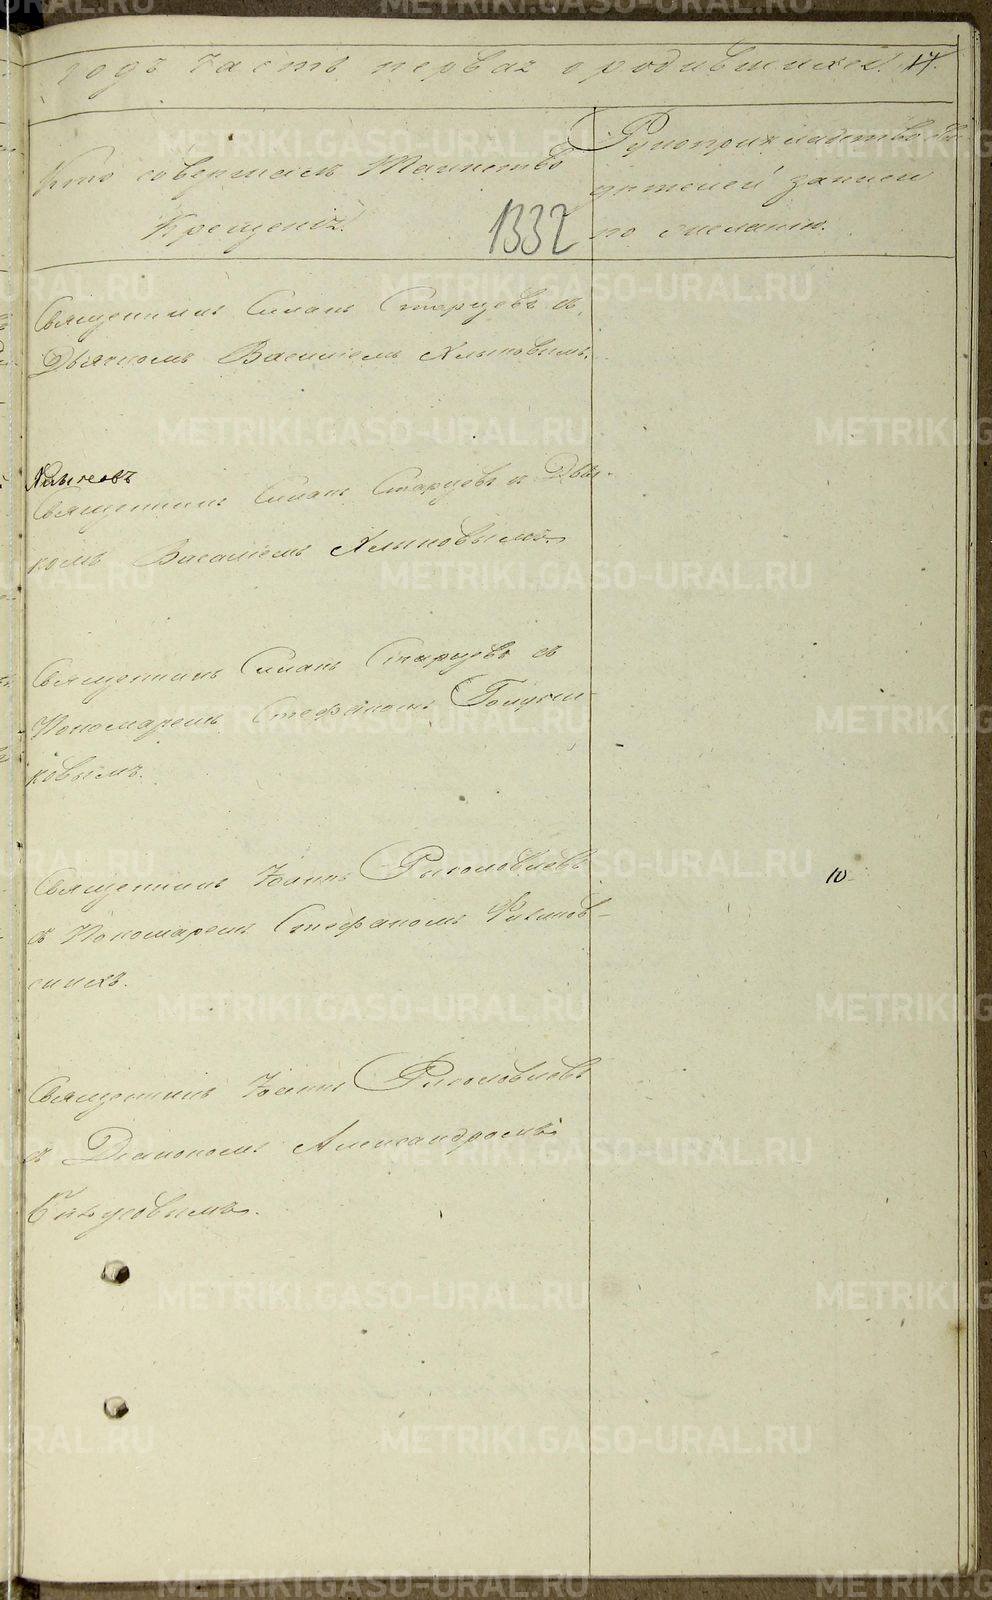 годъ часть первая о родившихся. 17.
Кто совершалъ Таинство
Крещенія.
1332
Рукоприкладство сви-
дѣтелей записи
по желанію.
Священникъ Симонъ Старцевъ съ
Дьякономъ Василіемъ Хлыновымъ.
Священникъ Симонъ Старцевъ съ Дья-
кономъ Василіемъ Хлыновымъ
Священникъ Симонъ Старцевъ съ
Пономаремъ Стефаномъ
ковымъ.
Священникъ Іоаннъ
съ Пономаремъ Стефаномъ
10
Священникъ Іоаннъ
съ Діакономъ Александромъ
METRIKI.GASO-URAL.RU